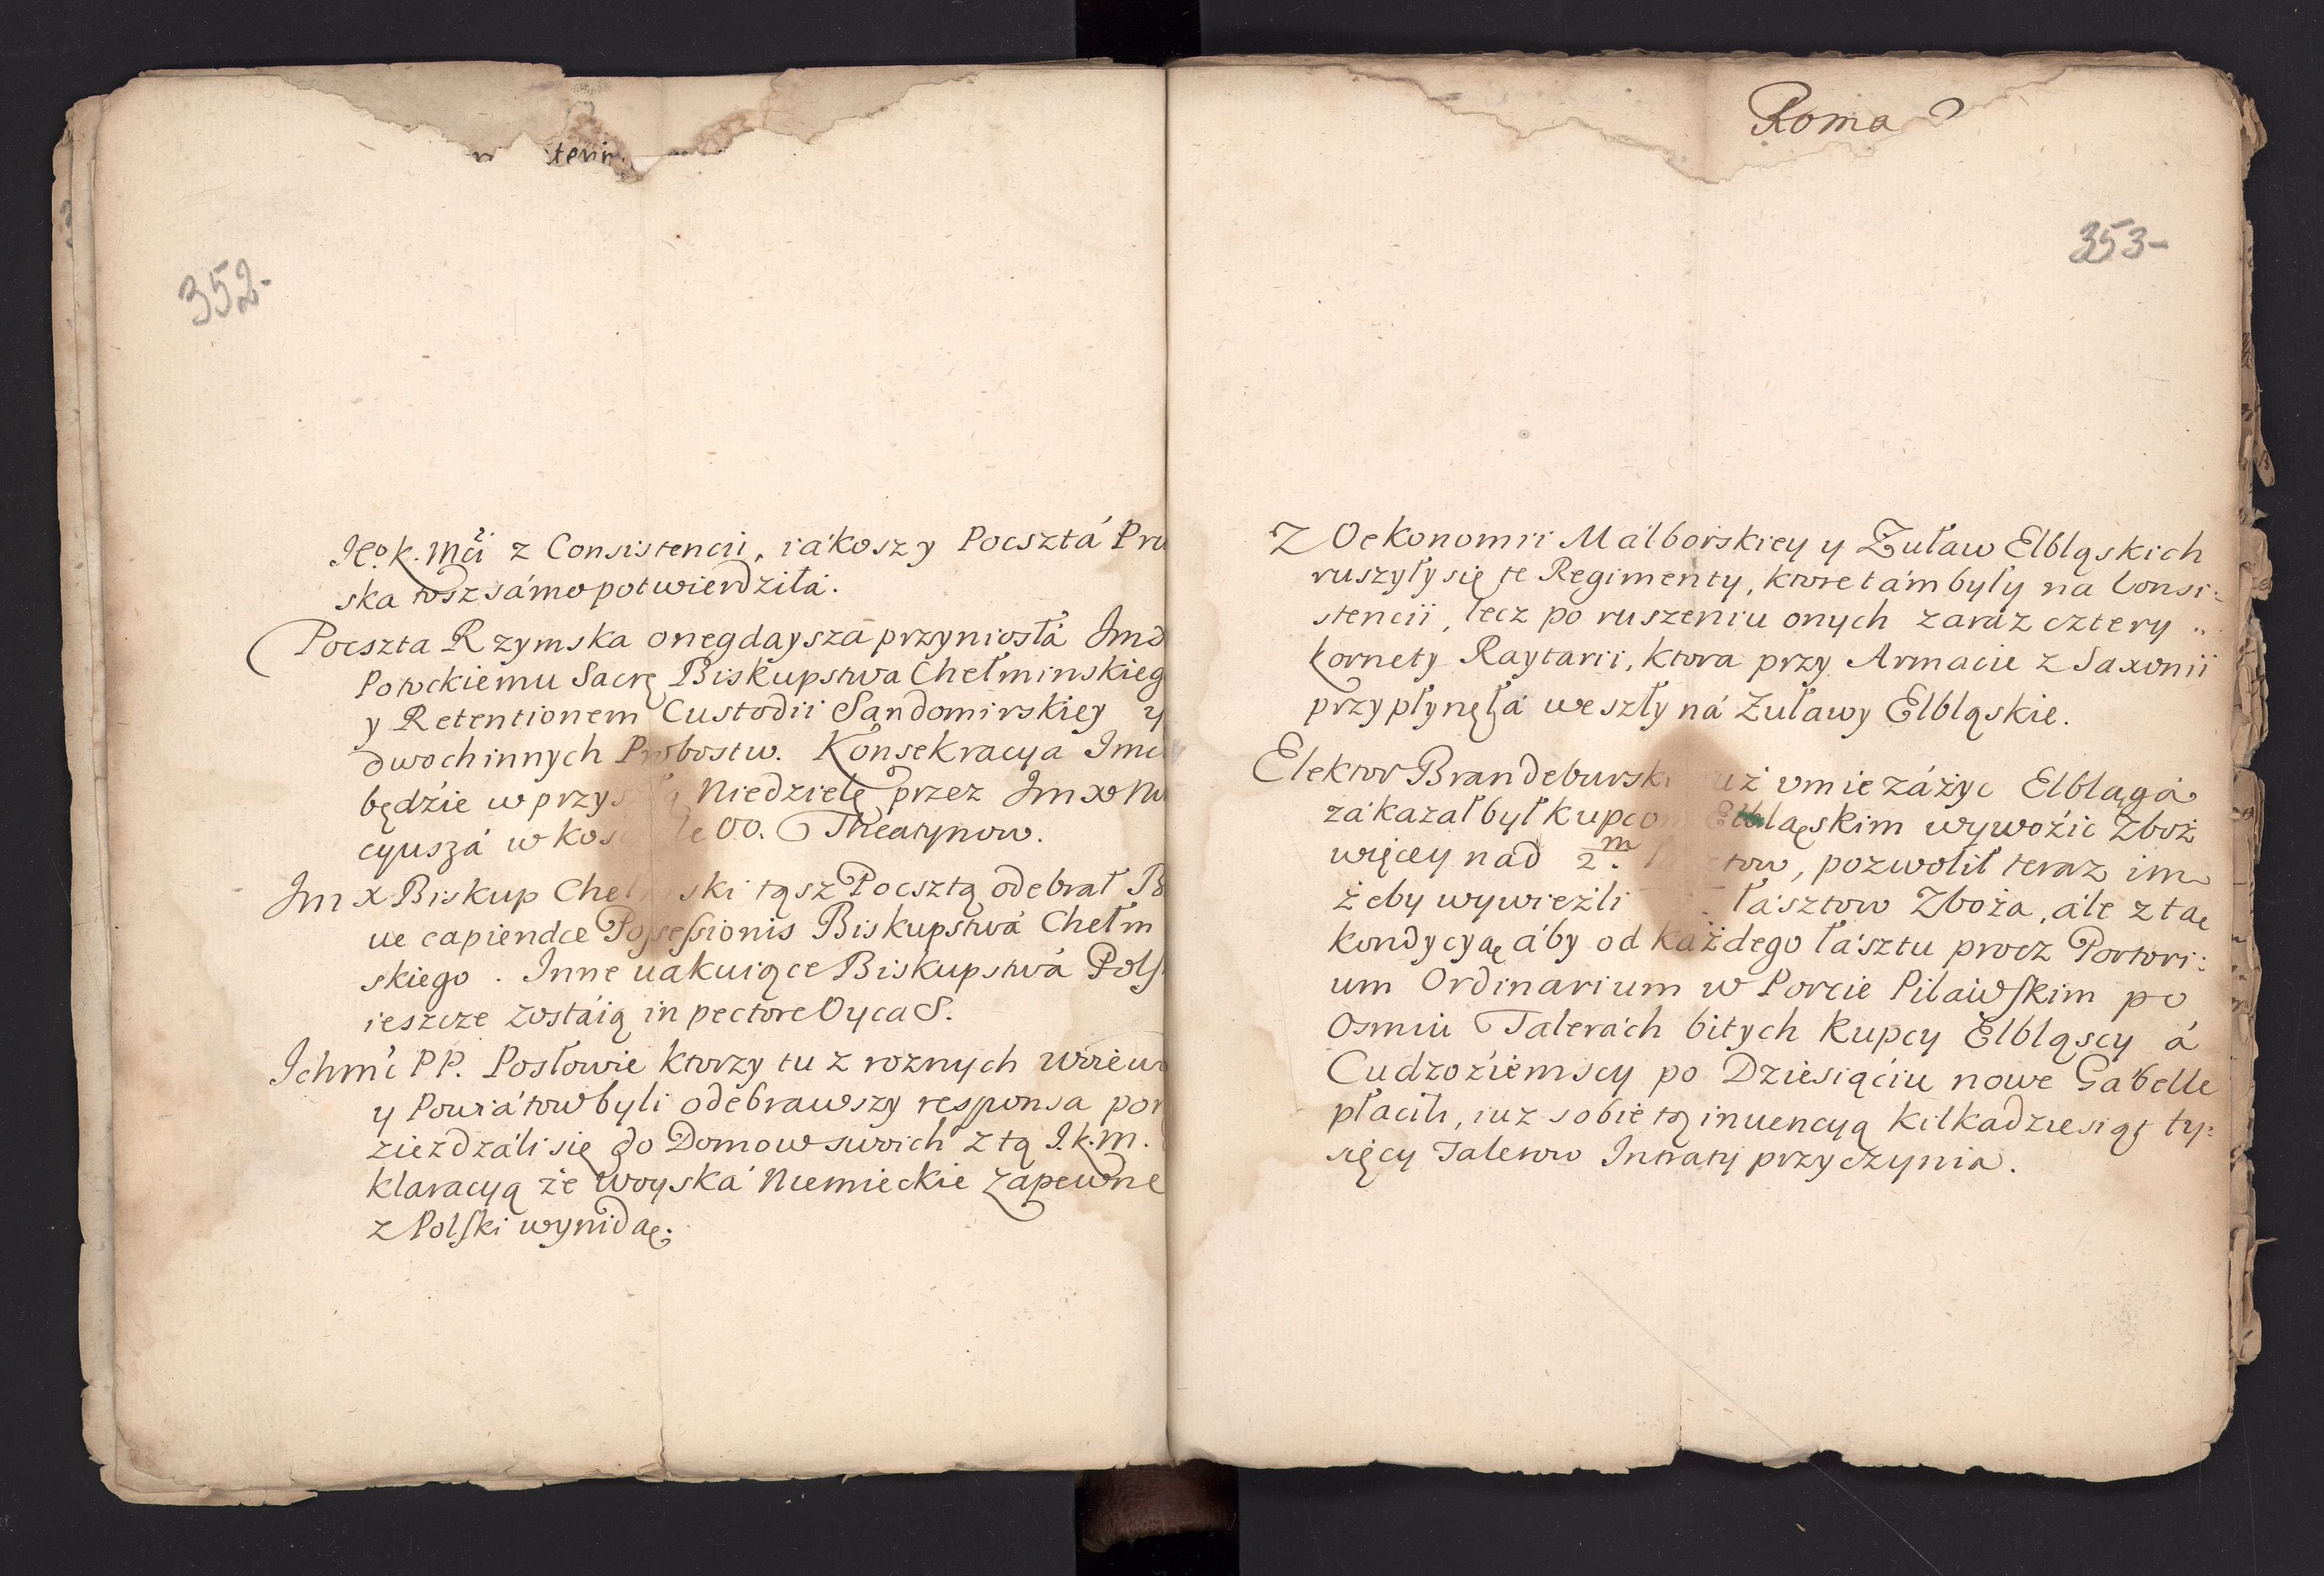 teri
352-
JE.o k. Mći z Consistencii, iákoszy Pocsztá Pru
ska tosz sámo potwierdziłá.
Pocszta Rzymska onegdaysza przyniosłá Jmd
Potockiemu Sacrę Biskupstwa Chełminskieg
y Retentionem Custodii Sandomirskiey y
dwoch innych Probostw. Konsekracya Jmc
będźie w przys Niedzielę przez Jmx Nu
cyuszá w Kos le OO. Theatynow.
Jmx Biskup Cheł ski tąsz Pocsztą odebrał B
ue capiendæ Possessionis Biskupstwá Chełm
skiego. Inne uakuiące Biskupstwá Pols
ieszcze zostáią in pectore Oyca S.
Ichmć PP. Posłowie ktorzy tu z roznych Woiew
y Powiátow byli odebrawszy responsa por
ziezdzáli się do Domow swoich z tą J.k.M.
klaracyą że Woyská Niemieckie zapewne
z Polski wynidaę.
Roma
353-
Z Oekonomii Málborskiey y Żuław Elbląskich
ruszyły się te Regimenty, ktore tám były na Consi:
stencii, lecz po ruszeniu onych zaráz cztery
Kornety Raytarii, ktora przy Armacie z Saxonii
przypłynęłá weszły ná Żuławy Elbląskie.
Elektor Brandeburski iuż vmie záżyc Elblągá
zákazał był kupcom Elblaęskim wywoźic Zboż
więcey nad 2.m tow, pozwolił teraz im
żeby wywieźli łásztow Zboża, ále z taę
kondycyaę áby od każdego łásztu procz Portori:
um Ordinarium w Porcie Piláwskim po
Osmiu Talerách bitych kupcy Elbląscy á
Cudzoźiemscy po Dziesiąćiu nowe Gábelle
płacili, iuz sobie tą inuencyą kilkadziesiąt ty:
sięcy Talerow Intraty przyczynia.